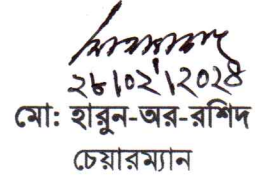 ২৮।০২।২০২৪
মো: হারুন-অর-রশিদ
চেয়ারম্যান